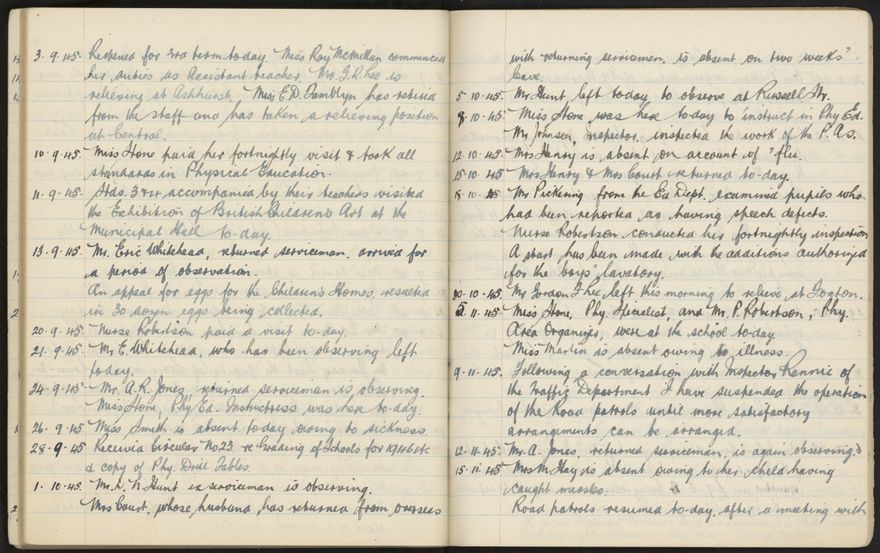 3.9.45. Reopened for 3rd term to-day. Miss Ray McMillan commenced
her duties as Assistant teacher. Mr. Lee is
relieving at Ashhurst. Miss E.D. Tamblyn has retired
from the staff and has taken a relieving position
at Central.
10.9.45. Miss Hone paid her fortnightly visit & took all
standards in Physical Education.
11.9.45. Stds. 3 & 4 accompanied by their teachers visited
the Exhibition of British Children's Art at the
Municipal Hall to-day.
13.9.45. Mr. Eric Whitehead, returned serviceman, arrived for
a period of observation.
An appeal for eggs for the Children's Homes, resulted
in 30 dozen eggs being collected.
20.9.45. Nurse Robertson paid a visit to-day.
21.9.45. Mr. E. Whitehead, who has been observing left
to day.
24.9.45. Mr. A.R. Jones, returned serviceman is observing.
Miss Hone, Phy. Ed. Instructress was here to-day.
26.9.45 Miss Smith is absent today owing to sickness.
28.9.45 Received Circular No 23 re Grading of Schools for 1946 etc
& copy of Phy. Drill Tables.
1.10.45. Mr. N Hunt ex serviceman is observing.
Mrs Court, whose husband, has returned from overseas
with returning servicemen, is absent on two weeks'
leave.
5.10.45. Mr. Hunt left today to observe at Russell St.
8.10.45. Miss Hone was here to-day to instruct in Phy Ed.
Mr. Johnson, Inspector, inspected the work of the P.As.
12.10.45. Mrs Henry is absent on account of 'flu.
15.10.45 Mrs Henry & Mrs Court returned to-day.
18.10.45 Mr Pickering from the Ed Dept. examined pupils who
had been reported as having speech defects.
Nurse Robertson conducted her fortnightly inspection
A start has been made with the additions authorized
for the boys' lavatory.
30.10.45. Mr Gordon Lee left this morning to relieve at Foxton.
5.11.45. Miss Hone, Phy. Specialist, and Mr. P. Robertson, Phy.
Area Organizer, were at the school to-day.
Miss Martin is absent owing to illness.
9.11.45. Following a conversation with Inspector Rennie of
the Traffic Department I have suspended the operation
of the Road patrols until more satisfactory
arrangements can be arranged.
12.11.45. Mr. A. Jones, returned serviceman, is again observing.
15.11.45 Mrs M. Hay is absent owing to her child having
caught measles.
Road patrols resumed to-day, after a meeting with